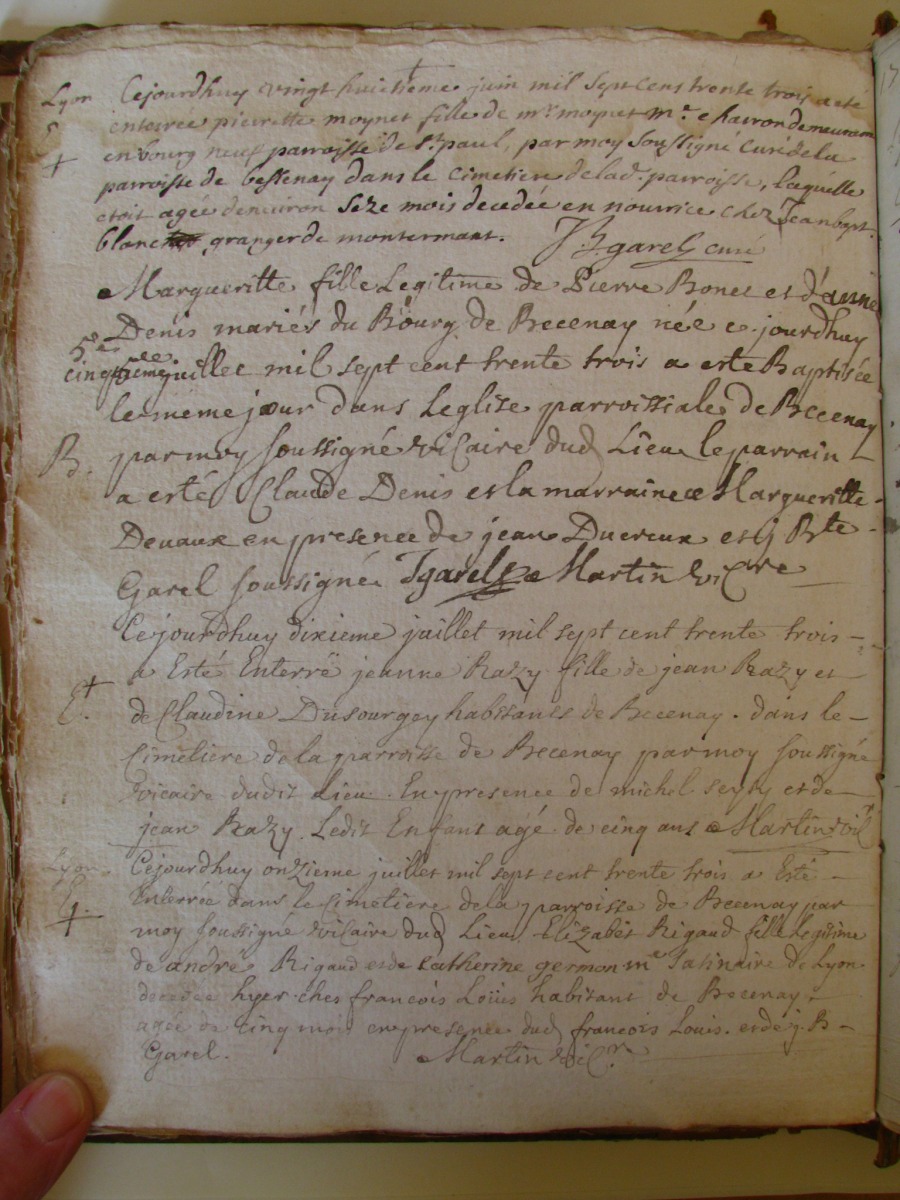 Lyon Cejourdhuy vingt huictieme juin mil sept cens trente trois a eté
enterree pierrette moynet fille de mr. moynet me. charron demeurant
E † en bourg neuf parroisse de st. paul, par moy soussigné curé de la
parroisse de bessenay dans le cimetiere de lad. parroisse, laquelle
etoit agée denviron seze mois decedée en nourrice chez Jean bapt.
blanc granger de montermant. JB garel curé
Margueritte fille Legitime de Pierre Bonet et d'anne
Denis mariés du Bourg de Becenay née cejourdhuy
5e cinquieme juillet mil sept cent trente trois a esté Baptisée
le meme jour dans Leglise parroissiale de Becenay
B. par moy soussigné vicaire dud Lieu le parrain
a esté Claude Denis et la marraine Margueritte
Devaux en presence de jean Ducreux et j Bte
Garel soussigné Jgarel Martin vicre
Cejourdhuy dixieme juillet mil sept cent trente trois
a Esté Enterré jeanne Razy fille de jean Razy et
E.† de Claudine Dusourgey habitants de Becenay. dans le
Cimetiere de la parroisse de Becenay par moy soussigné
vicaire dudit Lieu. En presence de michel et de
jean Razy. Ledit Enfant agé de cinq ans Martin vic
Lyon. Cejourdhuy onzieme juillet mil sept cent trente trois a Esté
E. † Enterrée dans le Cimetiere de la parroisse de Becenay par
moy soussigné vicaire dud Lieu Elizabet Rigaud fille Legitime
de andré Rigaud et de Catherine germon me Satinaire de Lyon
decedée hyer ches francois Loüis habitant de Becenay,
agée de cinq mois en presence dud francois Louis. et de j. B
Garel. Martin vicr.